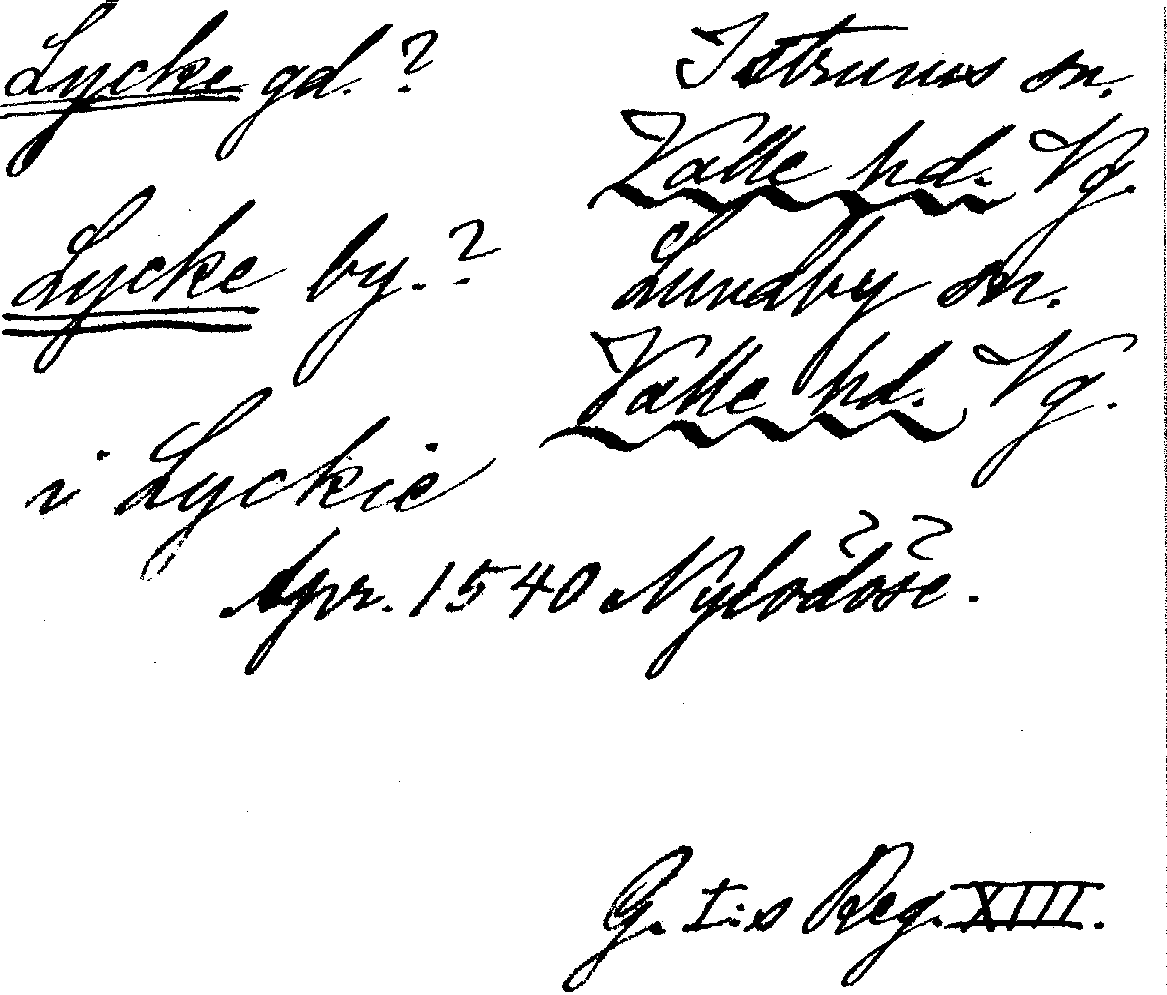 Lycke gd. ? Istrunns sn.
Valle hd. Vg.
Lycke by. ? Lundby sn.
Valle hd. Vg.
i Lyckie
Apr. 1540 Nylödöse.
G. I:s Reg. XIII.